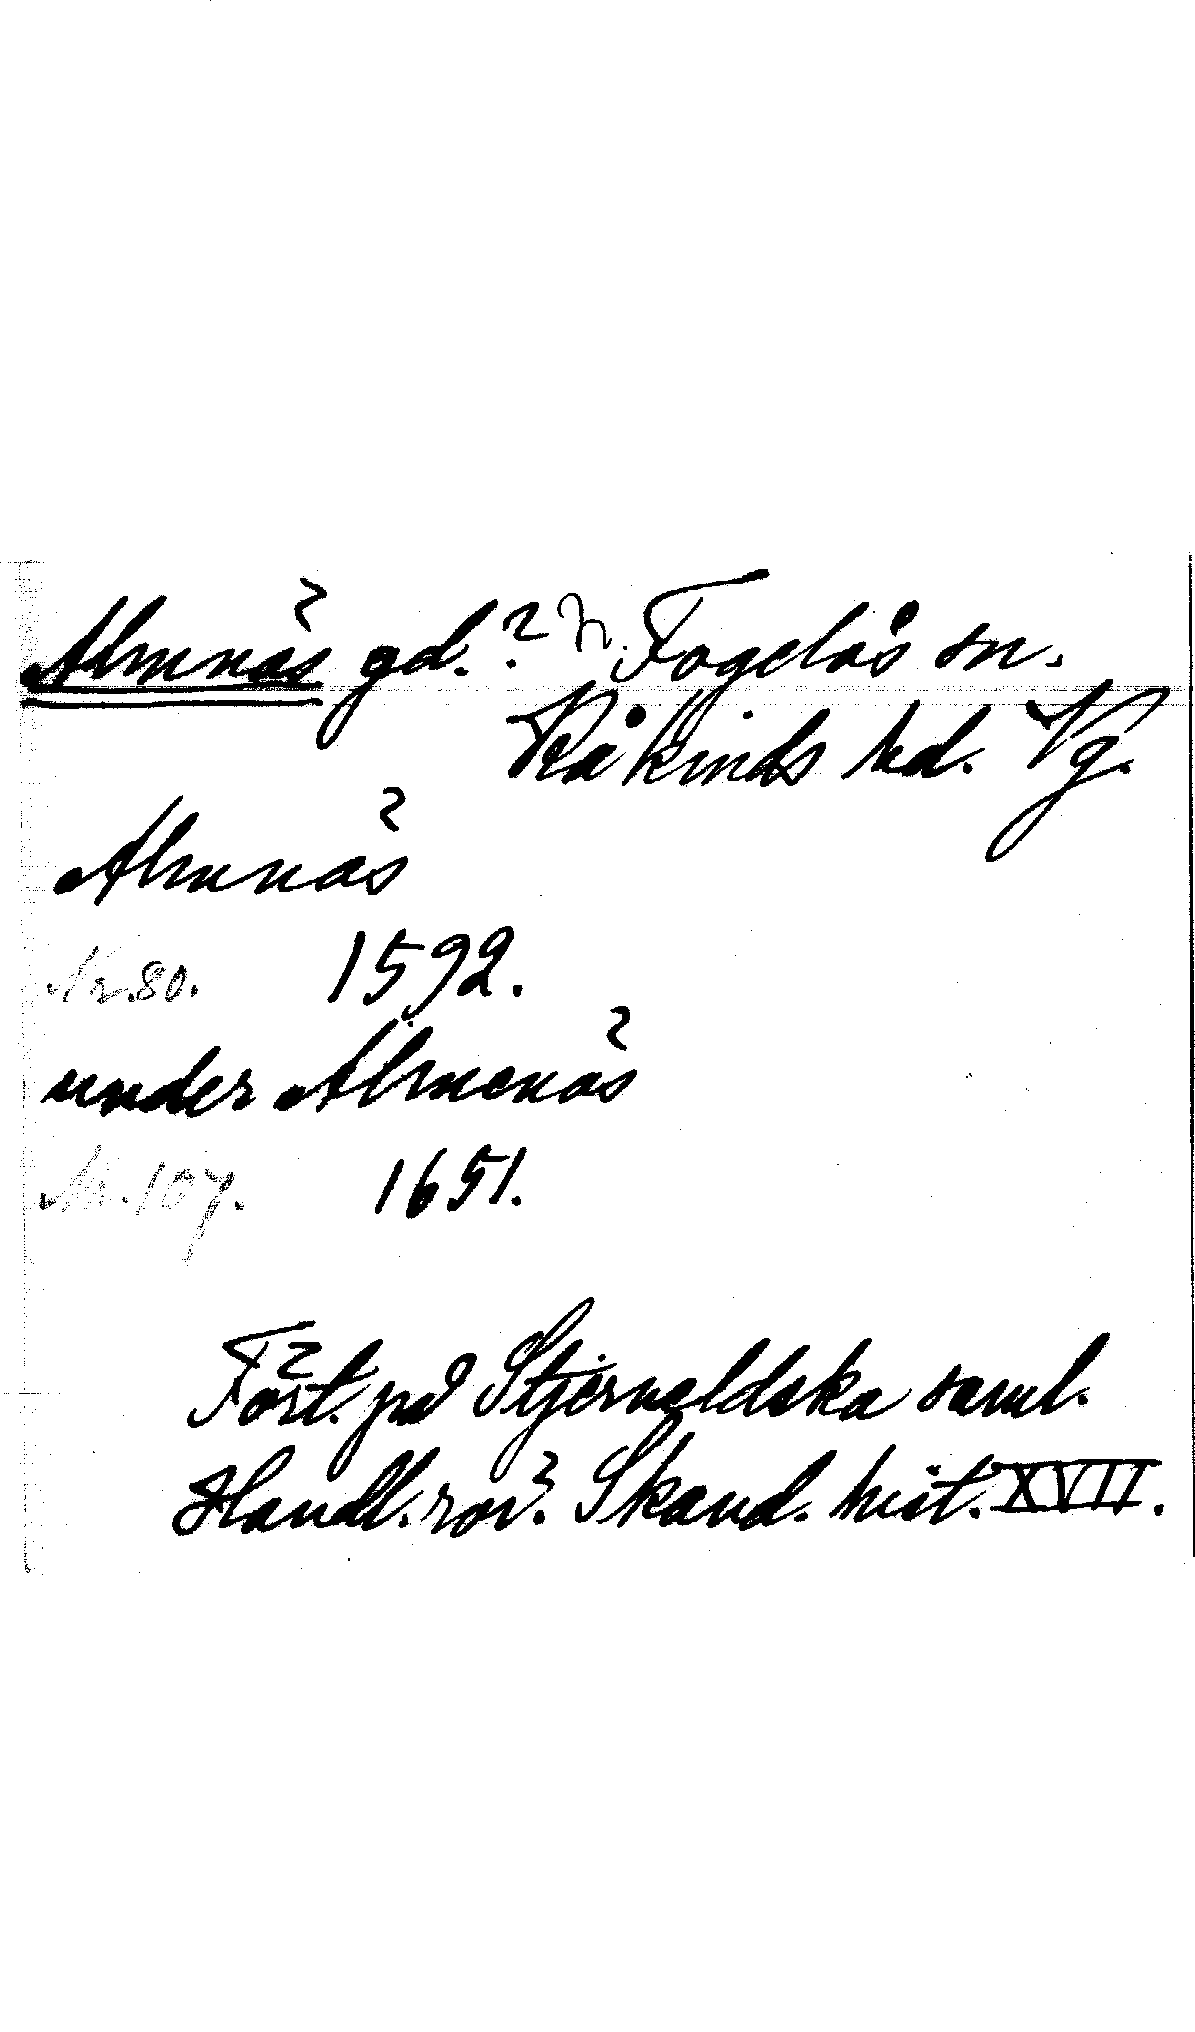 Almnäs gd.? N. Fogelås sn.
Kåkinds hd. Vg.
Almnäs
Nr. 80. 1592.
under Almenäs
Nr. 107. 1651.
Fört. på Stjerneldska saml.
Handl. rör. Skand. hist. XVII.